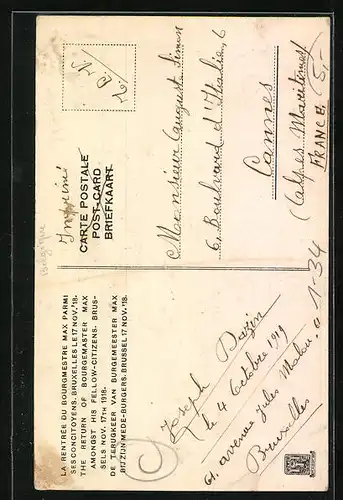 LA RENTRÉE DU BOURGMESTRE MAX PARMI
SES CONCITOYENS. BRUXELLES LE 17 NOV. '18-
THE RETURN OF BOURGEMASTER MAX
AMONGST HIS FELLOW-CITIZENS. BRUS-
SELS NOV. 17TH 1918.-
DE TERUGKEER VAN BURGEMEESTER MAX
BIJ ZIJN MEDE-BURGERS. BRUSSEL 17 NOV.-'18.
Joseph Bazin
le 4 Octobre 1919
61. avenue Jules
Bruxelles
Belgique
Imprimé
CARTE POSTALE
POST-CARD
BRIEFKAART
Monsieur Auguste Simon
6 Boulevard d'Italie, 6
Cannes
(Alpes Maritimes)
FRANCE
5,-
0-1-34